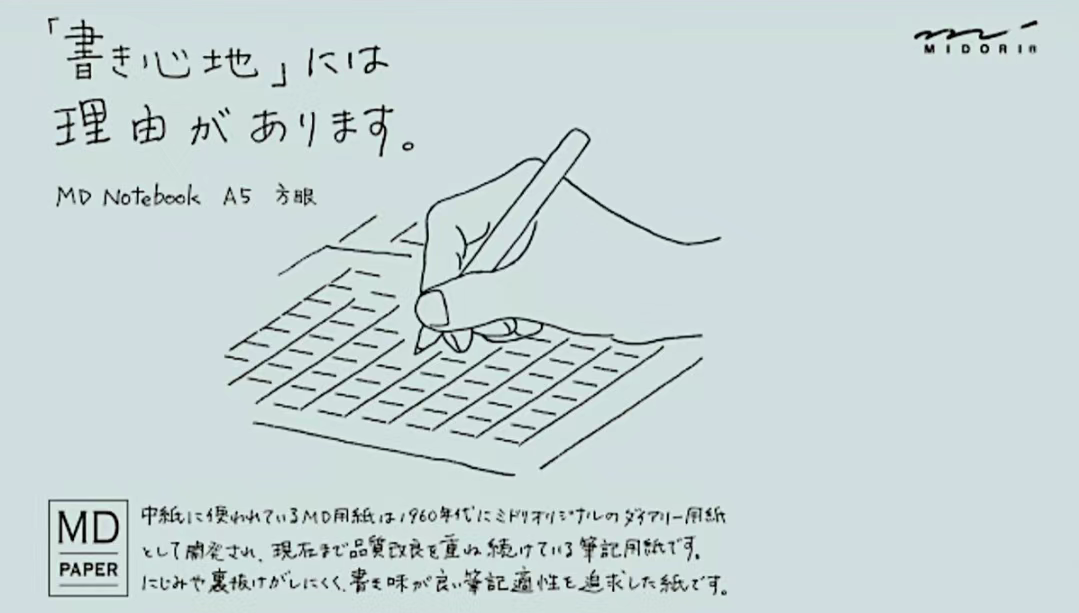 「書き心地」には
理由があります。
MD Notebook A5 方眼
MIDORI
MD
PAPER
中紙に使われているMD用紙は1960年代にミドリオリジナルのダイアリー用紙
として開発され、現在まで品質改良を重ね続けている筆記用紙です。
にじみや裏抜けがしにくく、書き味が良い筆記適性を追求した紙です。